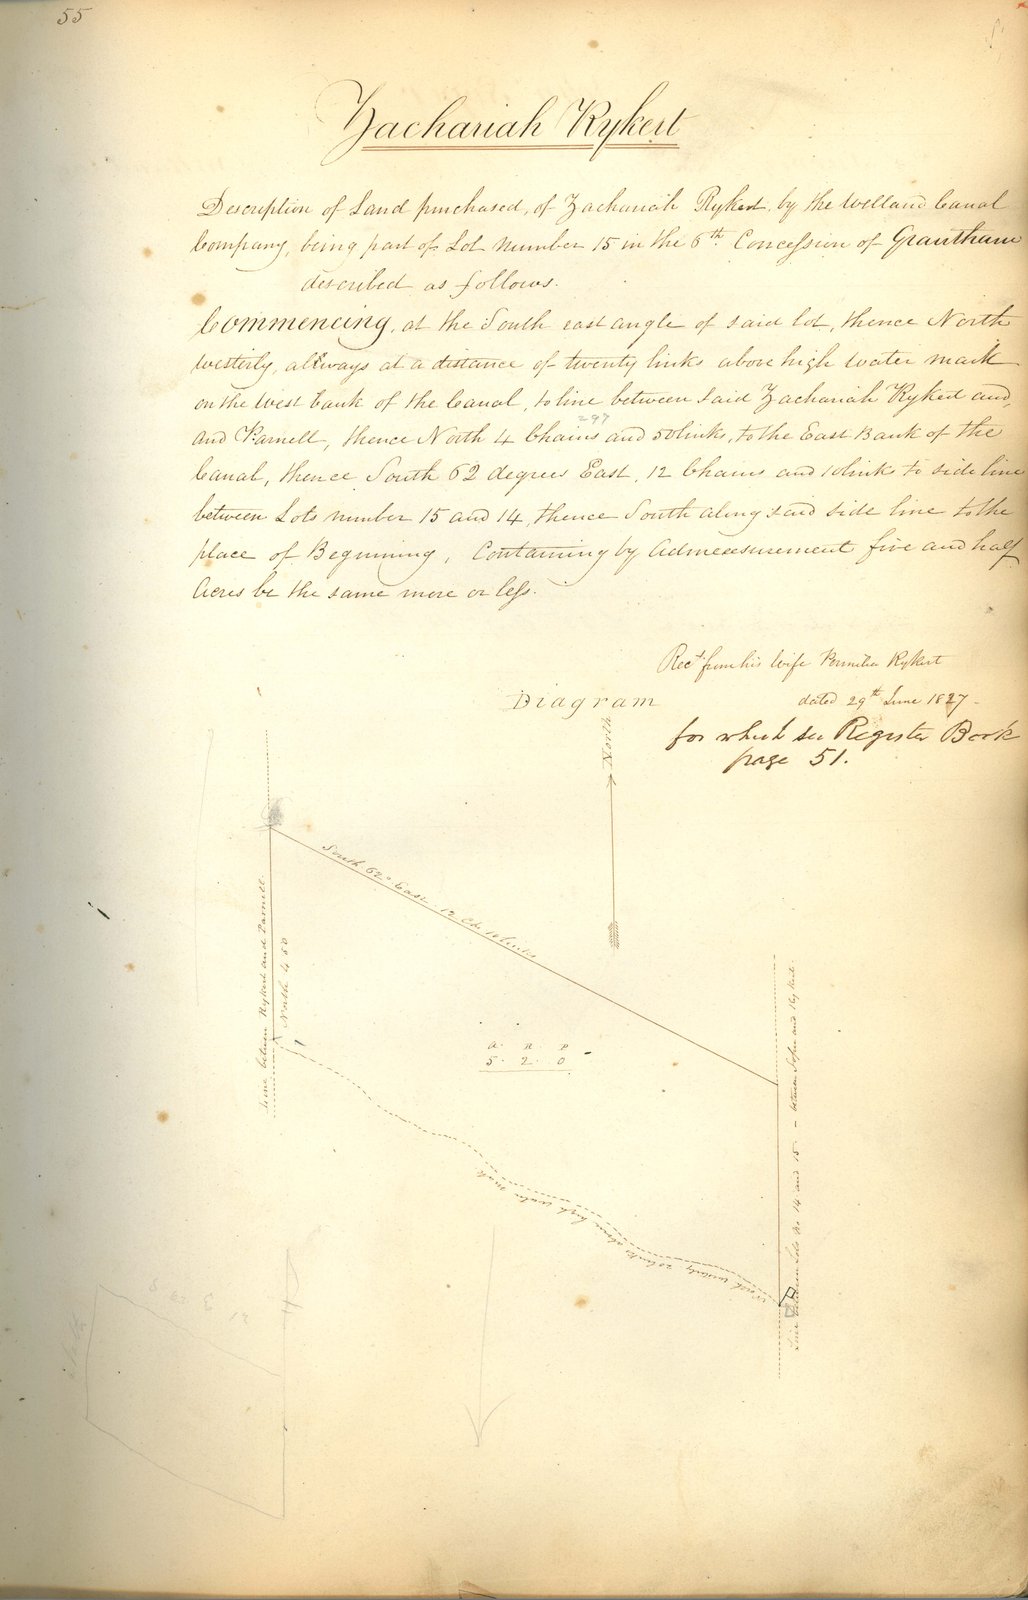 55
Zachariah Rykert
Description of Land purchased, of Zachariah Rykert by the Welland Canal
Company, being part of Lot number 15 in the 6th Concession of Grantham
described as follows.
Commencing, at the South east angle of said lot, thence North
westerly, allways at a distance of twenty links above high water mark
on the West bank of the Canal, to line between said Zachariah Rykert and,
297
and Parnell, thence North 4 Chains and 50 links, to the East Bank of the
Canal, thence South 62 degrees East, 12 Chains and 10 links to side line
between Lots number 15 and 14, thence South along said side line to the
place of Beginning, Containing by Admeasurement five and half
Acres be the same more or less.
Recd from his Wife Rykert
dated 29th June 1827.
for which see Register Book
page 51.
Diagram
North
South 62° East 12 Ch. 10 links
Line between Rykert and Parnell.
North 4 50
A. R. P
5. 2. 0
North westerly 20 links above high water mark
Line between Lots No 14 and 15 - between and Rykert